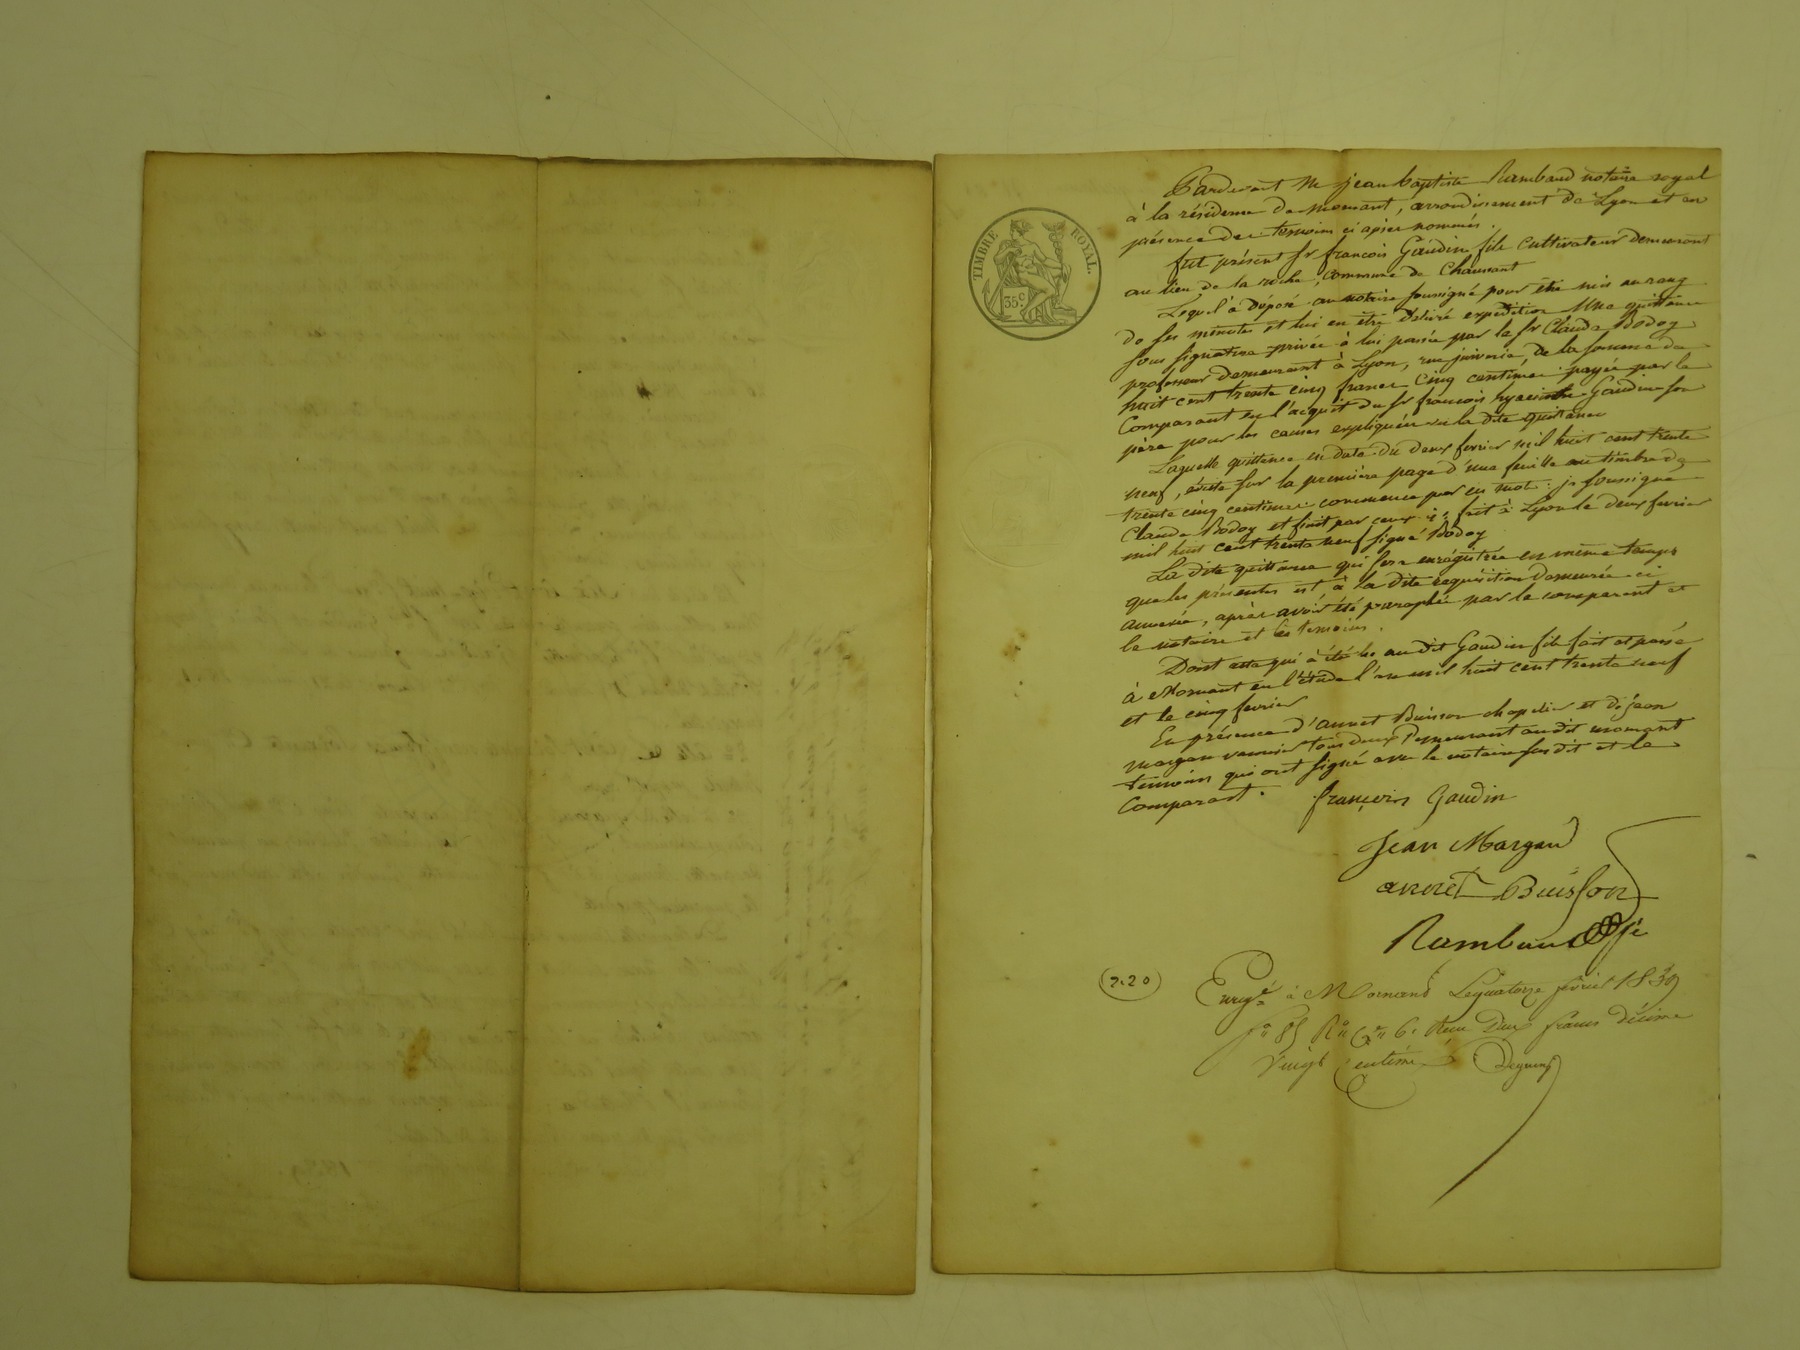 TIMBRE ROYAL.
35c
Pardevant Me jean baptiste Rambaud notaire royal
à la résidence de mornant, arrondissement de Lyon et en
présence des temoins ci après nommés.
fut présent Sr françois Gaudin fils cultivateur demeurant
au lieu de la roche, commune de Chaussant
Lequel à déposé au notaire soussigné pour être mis au rang
de ses minutes et lui en être délivré expédition Une quittance
sous signature privée à lui passée par le Sr Claude Bodoy
professeur demeurant à Lyon, rue juiverie, de la somme de
huit cent trente cinq francs cinq centimes payée par le
Comparant en l'acquit du Sr francois hyacinthe Gaudin son
père pour les causes expliquées en la dite quittance
Laquelle quittance en date du deux fevrier mil huit cent trente
neuf, écrite sur la première page d'une feuille au timbre de
trente cinq centimes commence par ces mots: je soussigné
Claude Bodoy et finit par ceux ci: fait à Lyon le deux fevrier
mil huit cent trente neuf signé Bodoy
La dite quittance qui sera enregistrée en même temps
que les présentes est à la dite requisition demeurée ci
annexée, après avoir été paraphée par le comparant et
le notaire et les temoins.
Dont acte qui à été lu au dit Gaudin fils fait et passé
à Mornant en l'étude l'an mil huit cent trente neuf
et le cinq fevrier
En présence d'annet Buisson chapelier et de jean
margan tous deux demeurant au dit mornant
temoins qui ont signé avec le notaire susdit et le
Comparant.
françois Gaudin
Jean Margand
annet Buisson
Rambaud
2.20
Enregé à Mornant Le quatorze fevrier 1839
fo 85 Ro Ce 6. Reçu Deux francs décime
Vingt Centimes